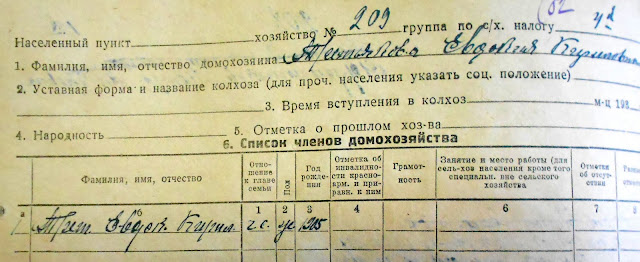 62
Населенный пункт хозяйство № 209 группа по с/х. налогу
1. Фамилия, имя, отчество домохозяина Третьякова Евдокия Кириловна
2. Уставная форма и название колхоза (для проч. населения указать соц. положение)
3. Время вступления в колхоз м-ц 193
4. Народность 5. Отметка о прошлом хоз-ва
6. Список членов домохозяйства
Фамилия, имя, отчество Отношение к главе семьи Пол Год рождения Отметка об инвалидности красноарм. и приравн. к ним Грамотность Занятие и место работы (для сель-хоз населения кроме того специальн. вне сельского хозяйства Отметки об отсутствии
1 2 3 4 5 6 7 8
1 Трет. Евдок. Кирил. г.с. 1905